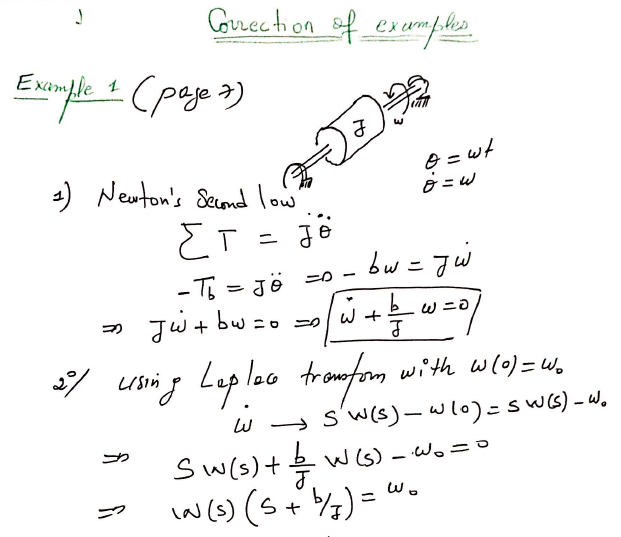 Correction of examples
Example 1 (page 7)
J
w
θ = wt
θ̇ = w
1) Newton's Second low
Σ T = J θ̈
-T_b = J θ̈ ⇒ - bw = J ẇ
⇒ J ẇ + bw = 0 ⇒ ẇ + b/J w = 0
2°/ using Laplace transfom with w(0) = w₀
ẇ → S W(s) - w(0) = S W(s) - w₀
⇒ S W(s) + b/J W(s) - w₀ = 0
⇒ W(s) (S + b/J) = w₀